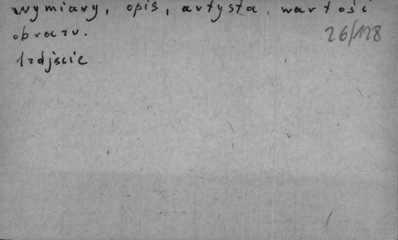 wymiary, opis, artysta, wartość
obrazu.
1 zdjęcie
26/128